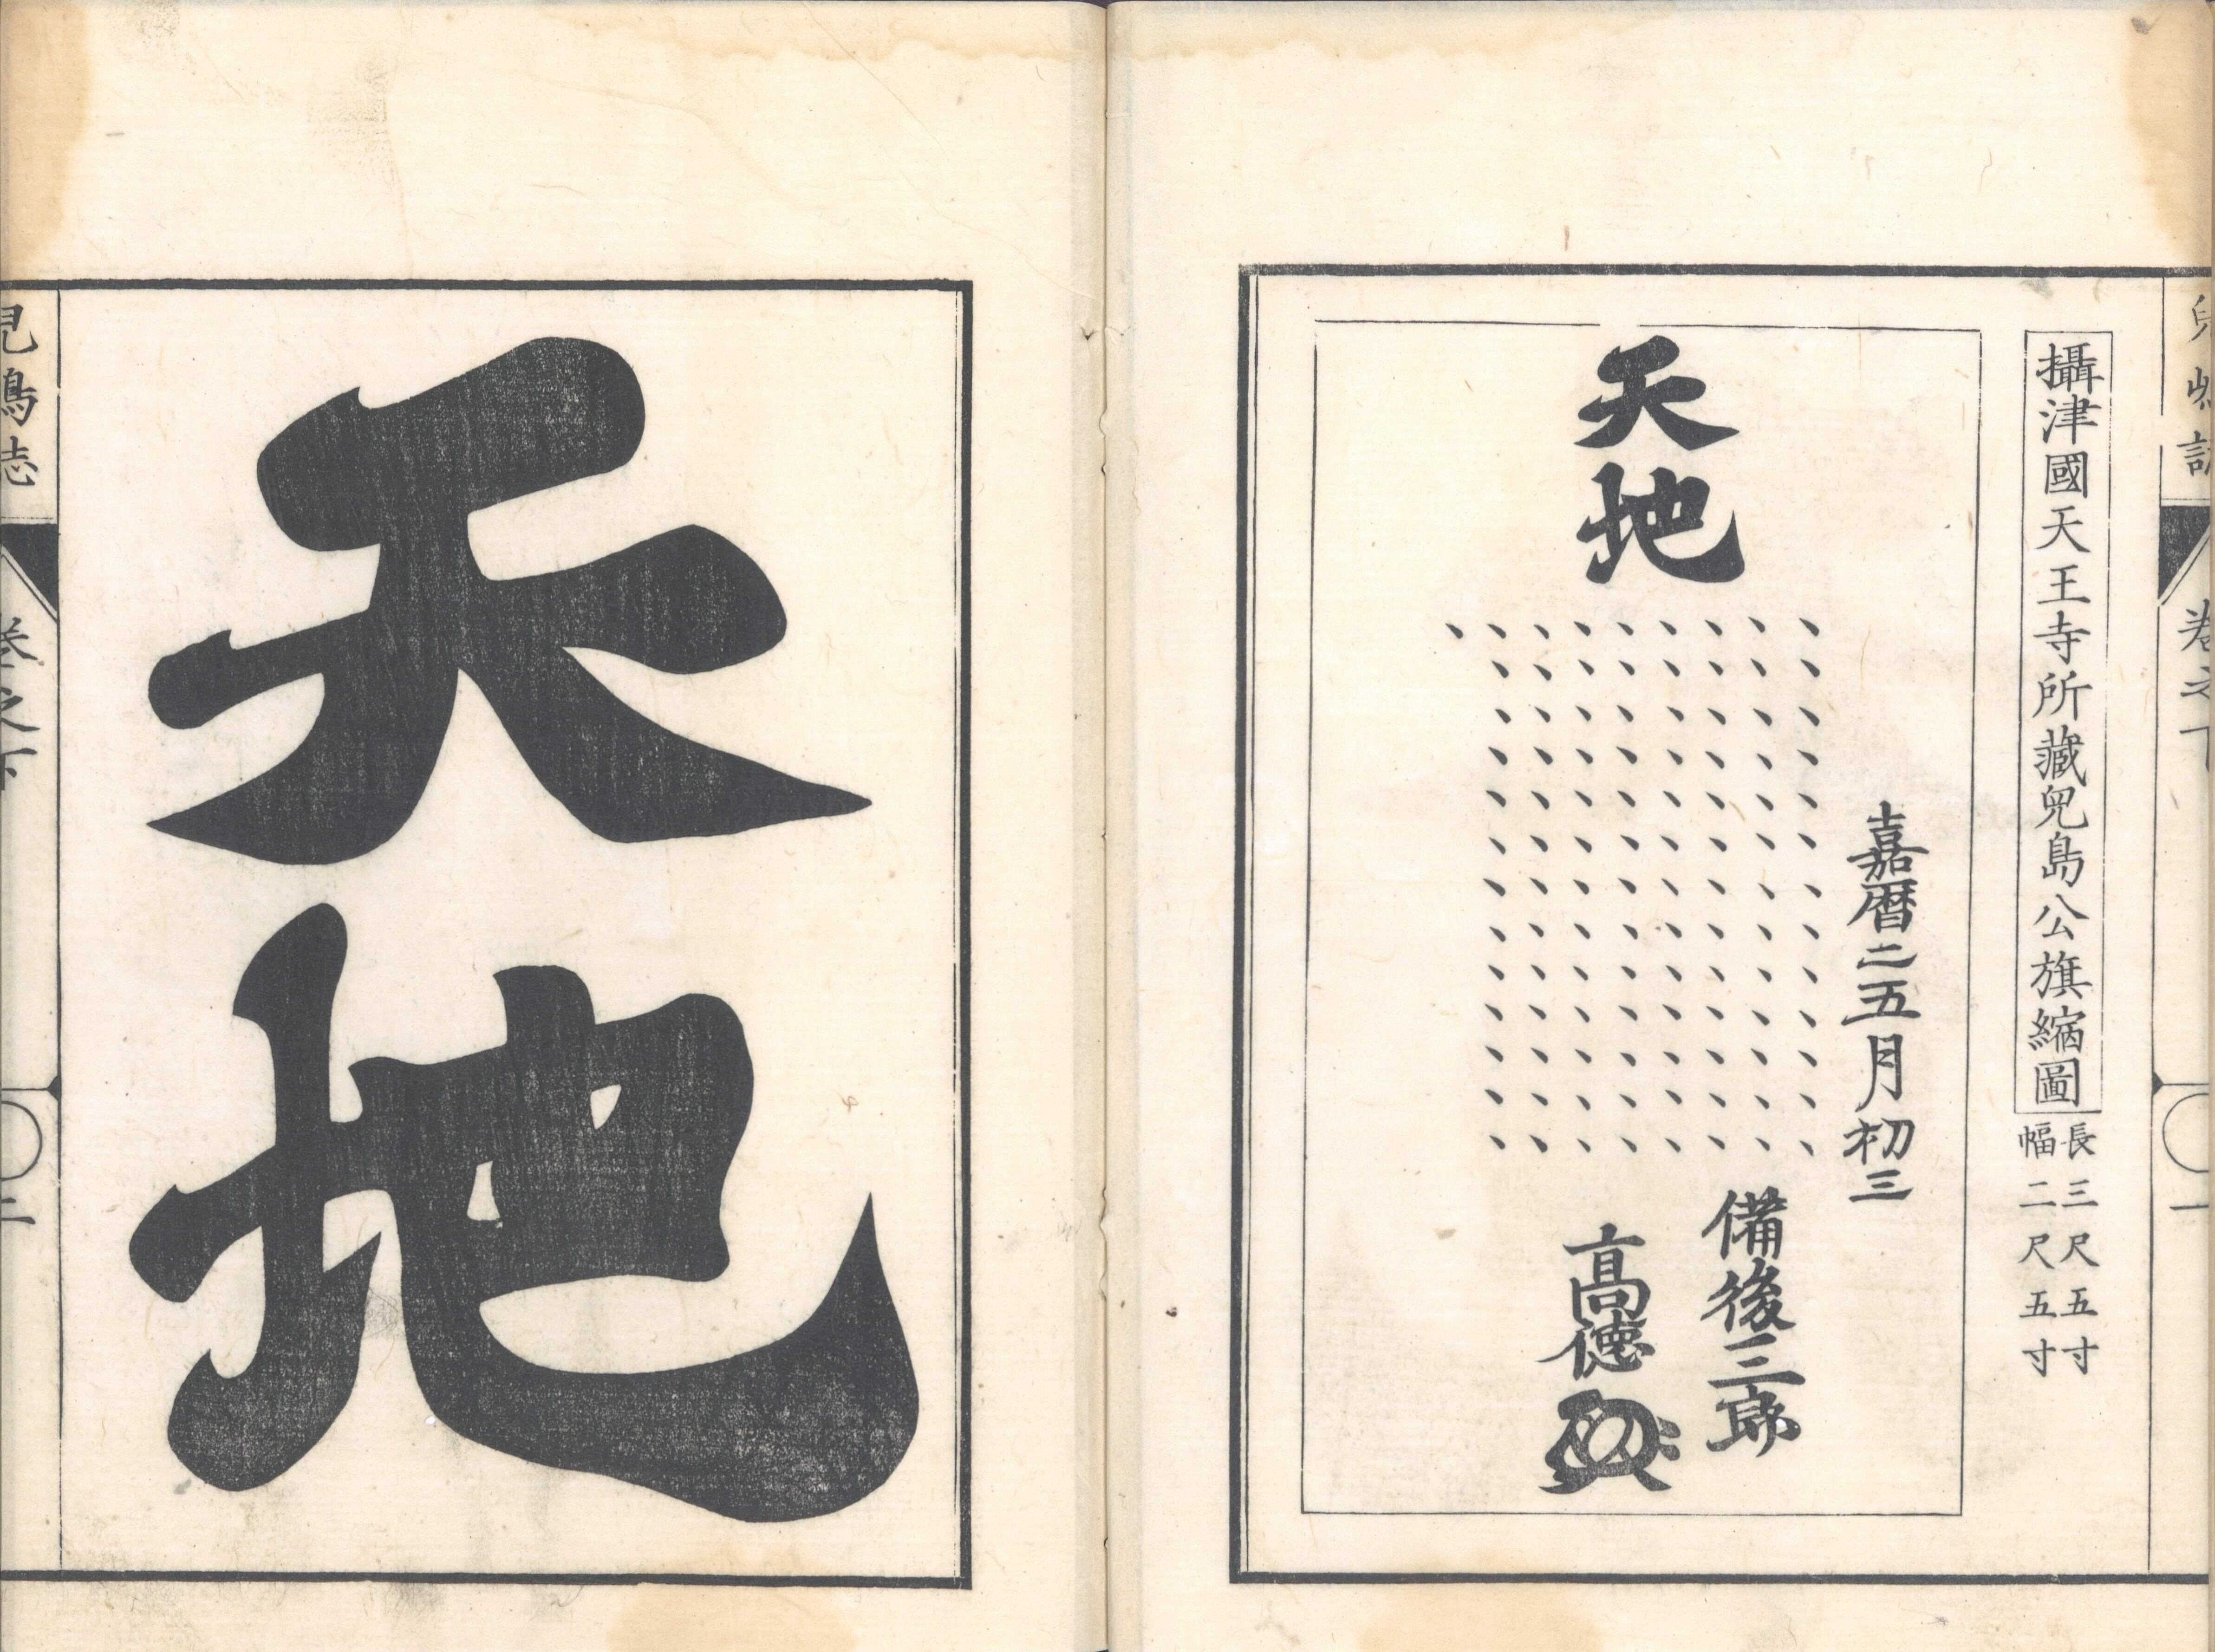 攝津國天王寺所藏兒島公旗縮圖
長三尺五寸
幅二尺五寸
嘉暦二五月初三
天地
備後三郎
高德
卷之下
一
天地
兒島志
卷之下
二